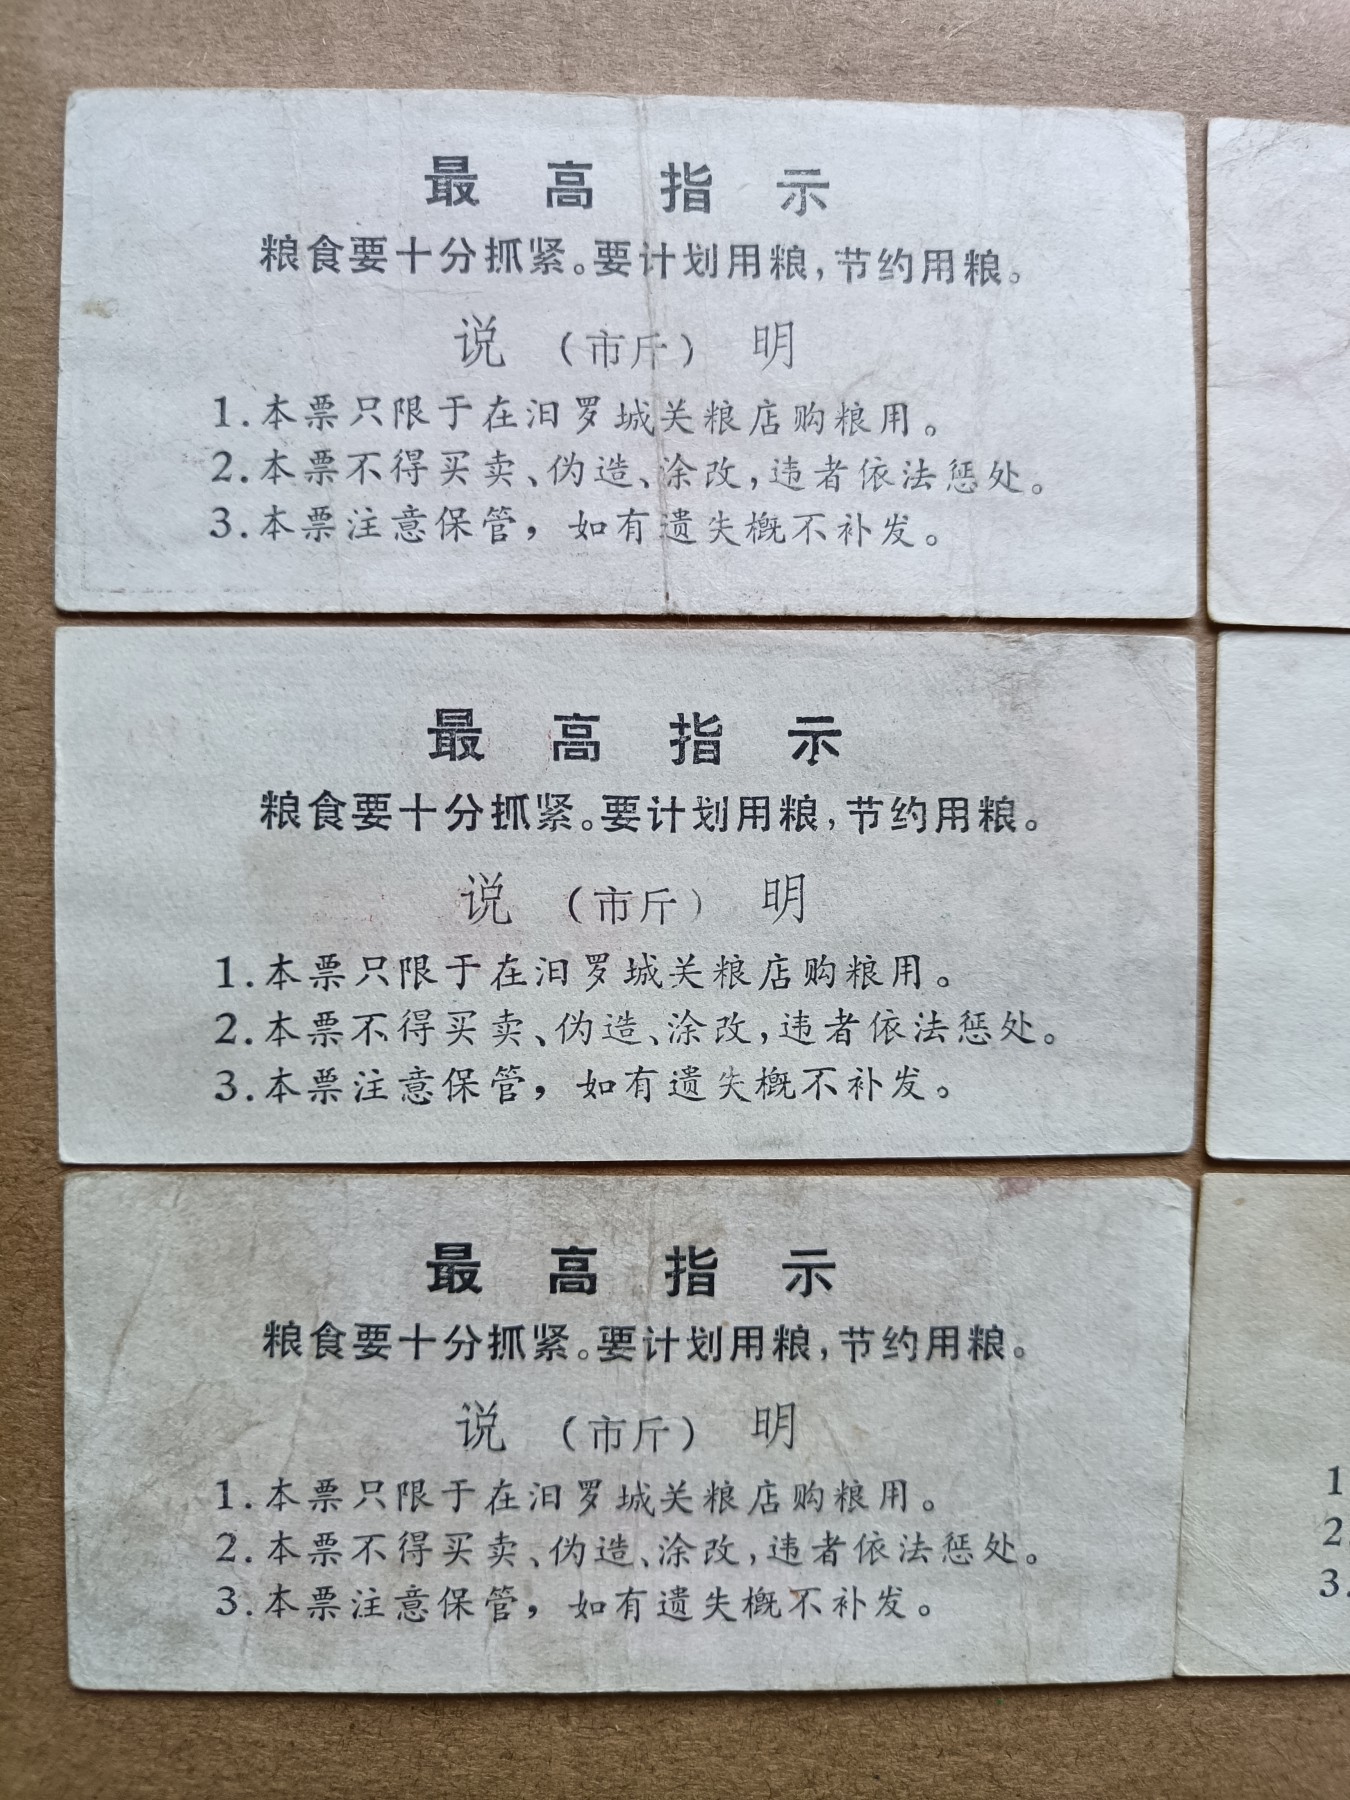 最高指示
粮食要十分抓紧。要计划用粮,节约用粮。
说(市斤)明
1.本票只限于在汨罗城关粮店购粮用。
2.本票不得买卖、伪造、涂改,违者依法惩处。
3.本票注意保管,如有遗失概不补发。
最高指示
粮食要十分抓紧。要计划用粮,节约用粮。
说(市斤)明
1.本票只限于在汨罗城关粮店购粮用。
2.本票不得买卖、伪造、涂改,违者依法惩处。
3.本票注意保管,如有遗失概不补发。
最高指示
粮食要十分抓紧。要计划用粮,节约用粮。
说(市斤)明
1.本票只限于在汨罗城关粮店购粮用。
2.本票不得买卖、伪造、涂改,违者依法惩处。
3.本票注意保管,如有遗失概不补发。
1
2.
3.